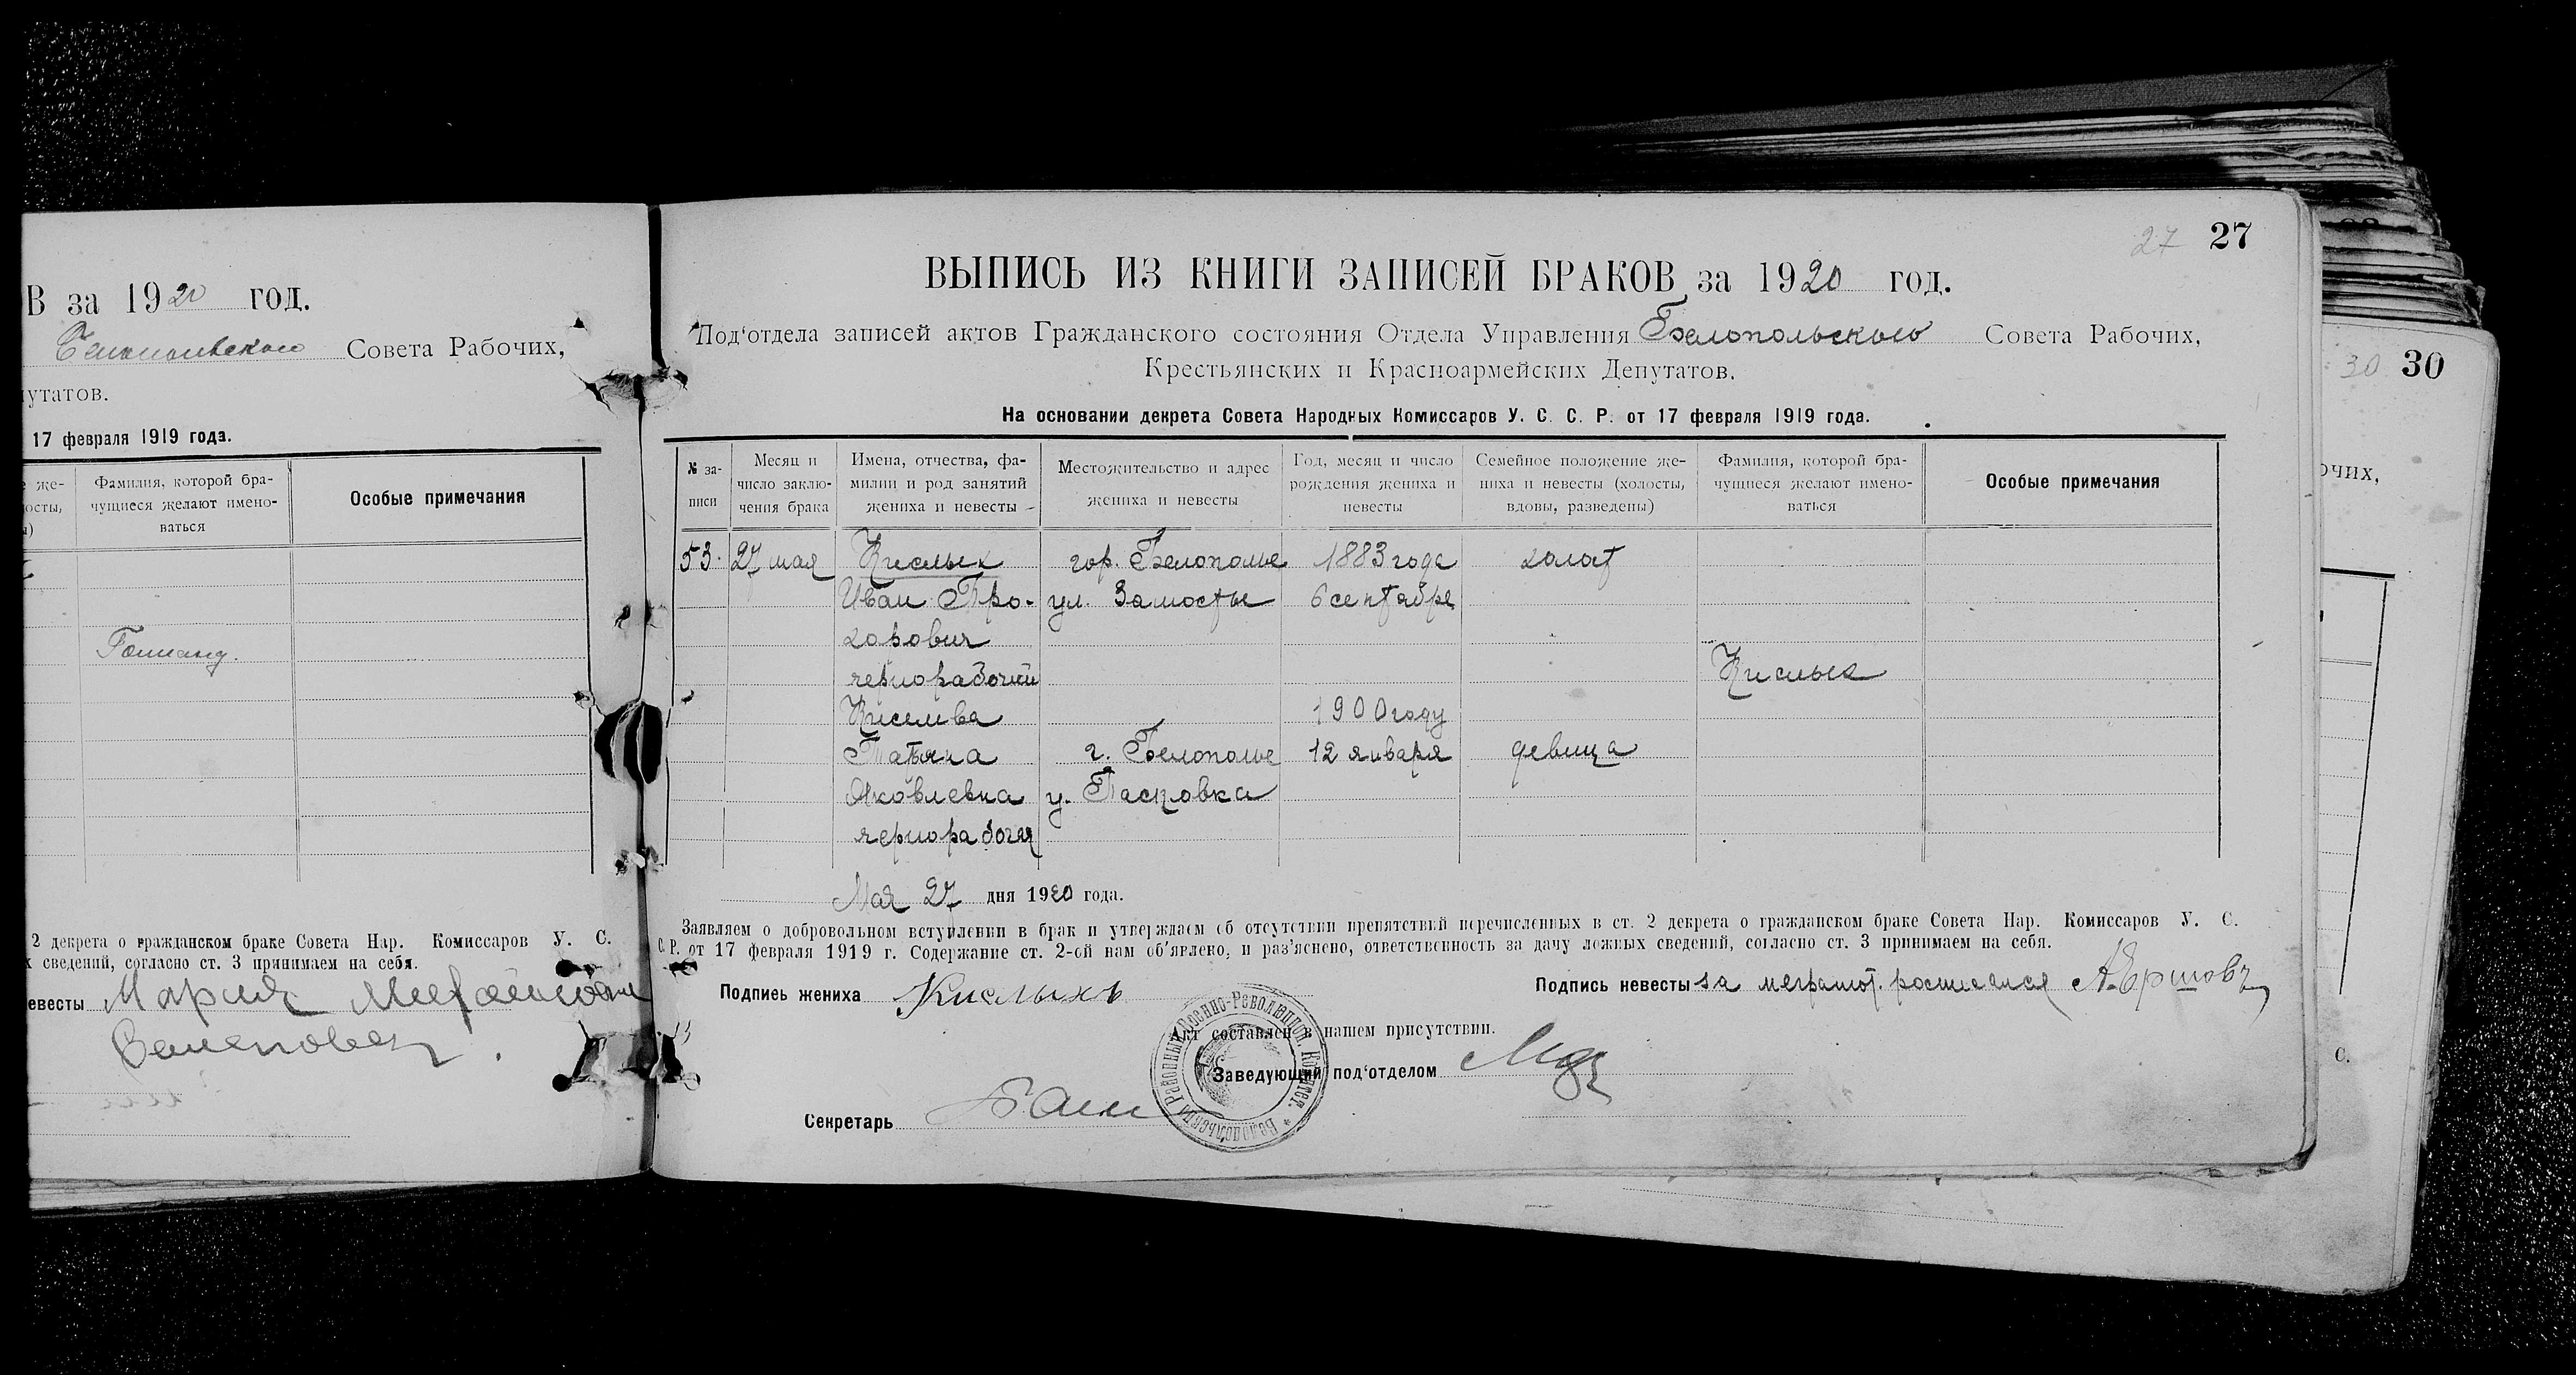 В за 1920 год.
Совета Рабочих,
утатов.
17 февраля 1919 года.
Фамилия, которой бра-
чущиеся желают имено-
ваться
Особые примечания
2 декрета о гражданском браке Совета Нар. Комиссаров У. С.
сведений, согласно ст. 3 принимаем на себя.
евесты Мария
27 27
ВЫПИСЬ ИЗ КНИГИ ЗАПИСЕЙ БРАКОВ за 1920 год.
Под'отдела записей актов Гражданского состояния Отдела Управления Белопольского Совета Рабочих,
Крестьянских и Красноармейских Депутатов.
На основании декрета Совета Народных Комиссаров У. С. С. Р. от 17 февраля 1919 года.
№ за-
писи
Месяц и
число заклю-
чения брака
Имена, отчества, фа-
милии и род занятий
жениха и невесты
Местожительство и адрес
жениха и невесты
Год, месяц и число
рождения жениха и
невесты
Семейное положение же-
ниха и невесты (холосты,
вдовы, разведены)
Фамилия, которой бра-
чущиеся желают имено-
ваться
Особые примечания
53. 27 мая Кислых гор. Белополье 1883 года холост
Иван Про- ул. Замостье 6 сентября
хорович
чернорабочий Кислых
1900 году
Татьяна г. Белополье 12 января девица
Яковлевна у.
чернорабочая
Мая 27 дня 1920 года.
Заявляем о добровольном вступлении в брак и утверждаем об отсутствии препятствий перечисленных в ст. 2 декрета о гражданском браке Совета Нар. Комиссаров У. С.
С. Р. от 17 февраля 1919 г. Содержание ст. 2-ой нам об'явлено, и раз'яснено, ответственность за дачу ложных сведений, согласно ст. 3 принимаем на себя.
Подпись жениха Кислыхъ
Подпись невесты за неграмот. А. Ершовъ
Акт составлен в нашем присутствии.
Заведующий под'отделом
Секретарь
30 30
очих,
С.